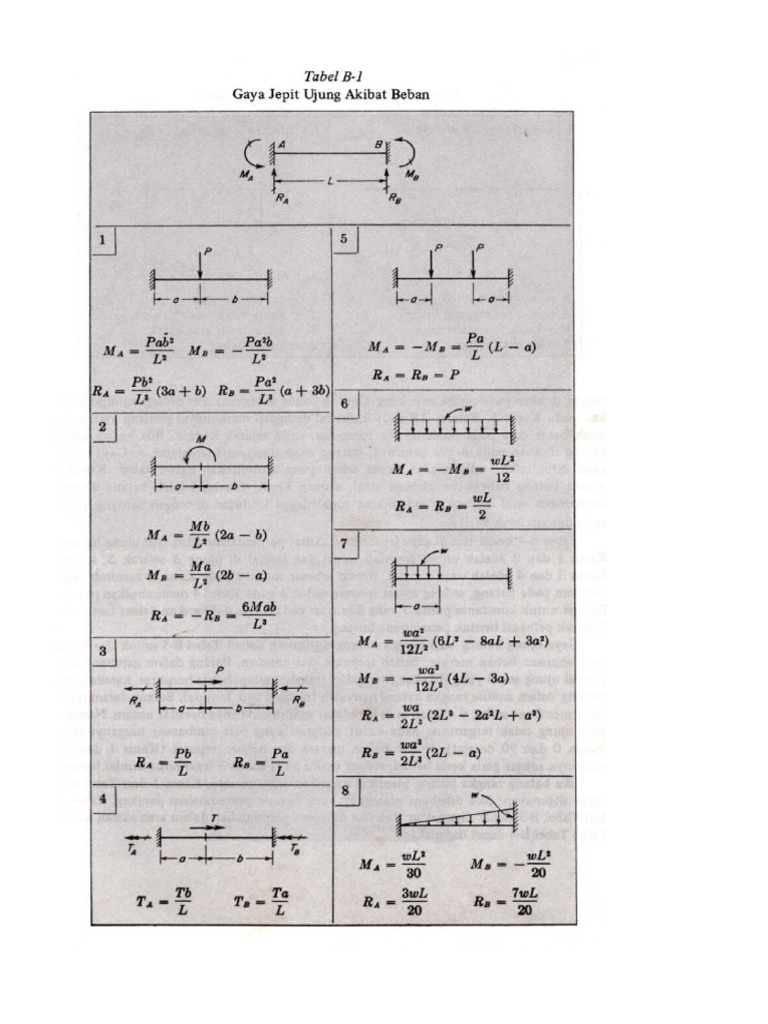 Tabel B-1
Gaya Jepit Ujung Akibat Beban
A B
M_A L M_B
R_A R_B
1
P
a b
M_A = Pab²/L² M_B = − Pa²b/L²
R_A = Pb²/L³ (3a + b) R_B = Pa²/L³ (a + 3b)
2
M
a b
M_A = Mb/L² (2a − b)
M_B = Ma/L² (2b − a)
R_A = − R_B = 6Mab/L³
3
P
R_A R_B
a b
R_A = Pb/L R_B = Pa/L
4
T
T_A T_B
a b
T_A = Tb/L T_B = Ta/L
5
P P
a a
M_A = − M_B = Pa/L (L − a)
R_A = R_B = P
6
w
M_A = − M_B = wL²/12
R_A = R_B = wL/2
7
w
a
M_A = wa²/12L² (6L² − 8aL + 3a²)
M_B = − wa³/12L² (4L − 3a)
R_A = wa/2L³ (2L³ − 2a²L + a³)
R_B = wa³/2L³ (2L − a)
8
w
M_A = wL²/30 M_B = − wL²/20
R_A = 3wL/20 R_B = 7wL/20